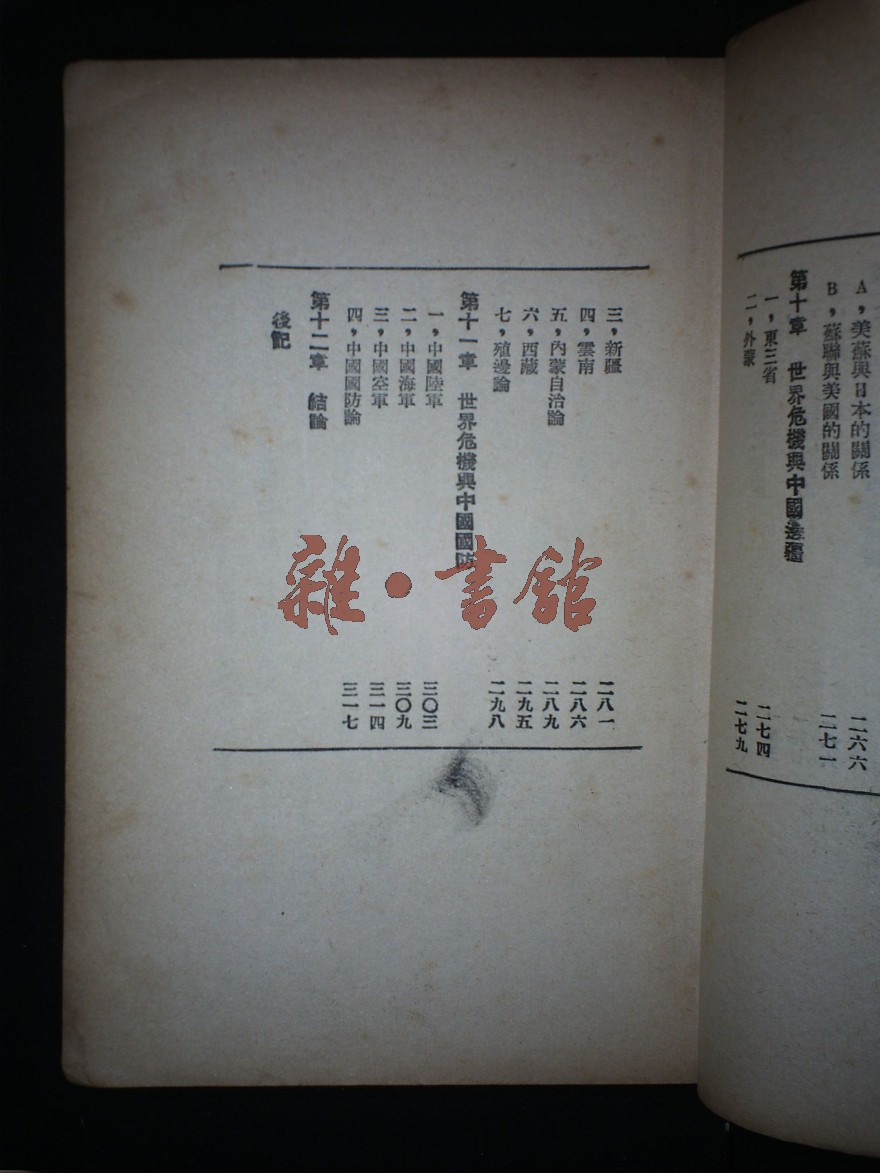 A，美蘇與日本的關係 二六六
B，蘇聯與美國的關係 二七一
第十章 世界危機與中國邊疆
一，東三省 二七四
二，外蒙 二七九
三，新疆 二八一
四，雲南 二八六
五，內蒙自治論 二八九
六，西藏 二九五
七，殖邊論 二九八
第十一章 世界危機與中國國防
一，中國陸軍 三〇三
二，中國海軍 三〇九
三，中國空軍 三一四
四，中國國防論 三一七
第十二章 結論
後記
雜·書館